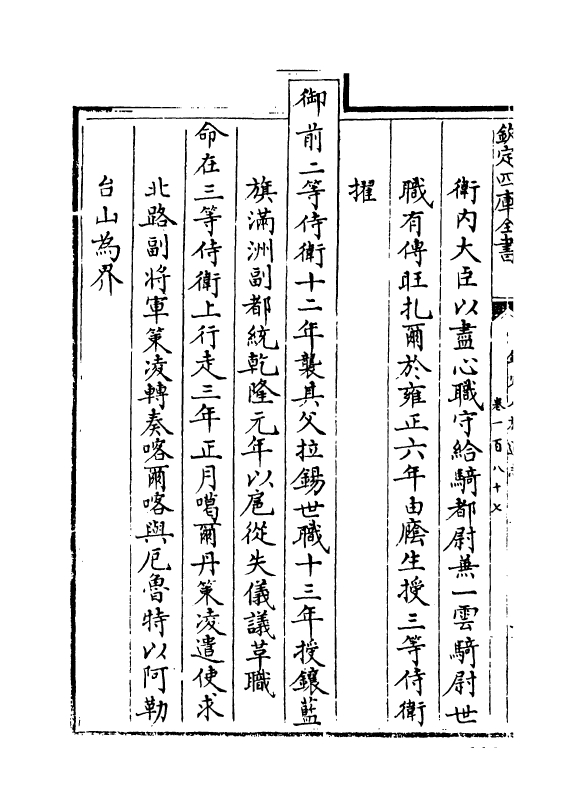 欽定四庫全書
卷一百八十七
衛内大臣以盡心職守給騎都尉兼一雲騎尉世
職有傳旺扎爾於雍正六年由廕生授三等侍衛
擢
御前二等侍衛十二年襲其父拉錫世職十三年授鑲藍
旗滿洲副都統乾隆元年以扈從失儀議革職
命在三等侍衛上行走三年正月噶爾丹策凌遣使求
北路副將軍策凌轉奏喀爾喀與厄魯特以阿勒
台山為界